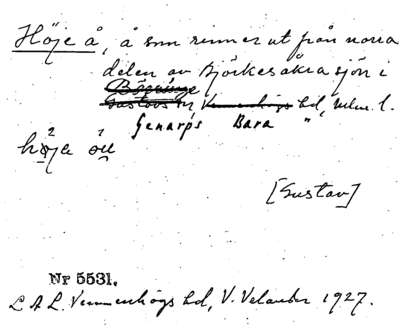 Höje å, å som rinner ut från norra
delen av Björkesåkrasjön i
Börringe
Gustavs sn Vemmenhögs hd, Malm. l.
Genarps Bara "
[Gustav]
Nr 5531.
L.A.L. Vemmenhögs hd, V. Velander 1927.